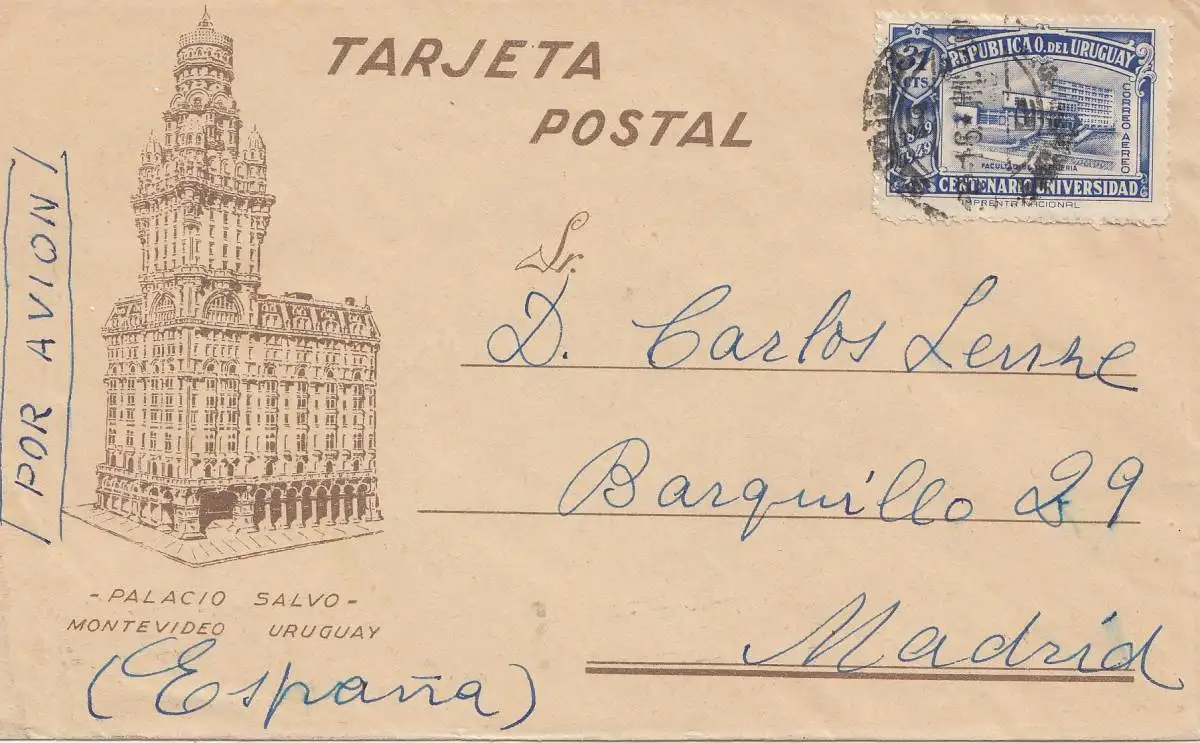 TARJETA
POSTAL
31
CTS.
REPUBLICA O. DEL URUGUAY
CORREO AEREO
1849
1949
FACULTAD DE INGENIERIA
CENTENARIO UNIVERSIDAD
IMPRENTA NACIONAL
/POR AVION/
Sr.
D. Carlos
Barquillo 29
Madrid
- PALACIO SALVO -
MONTEVIDEO URUGUAY
(España)